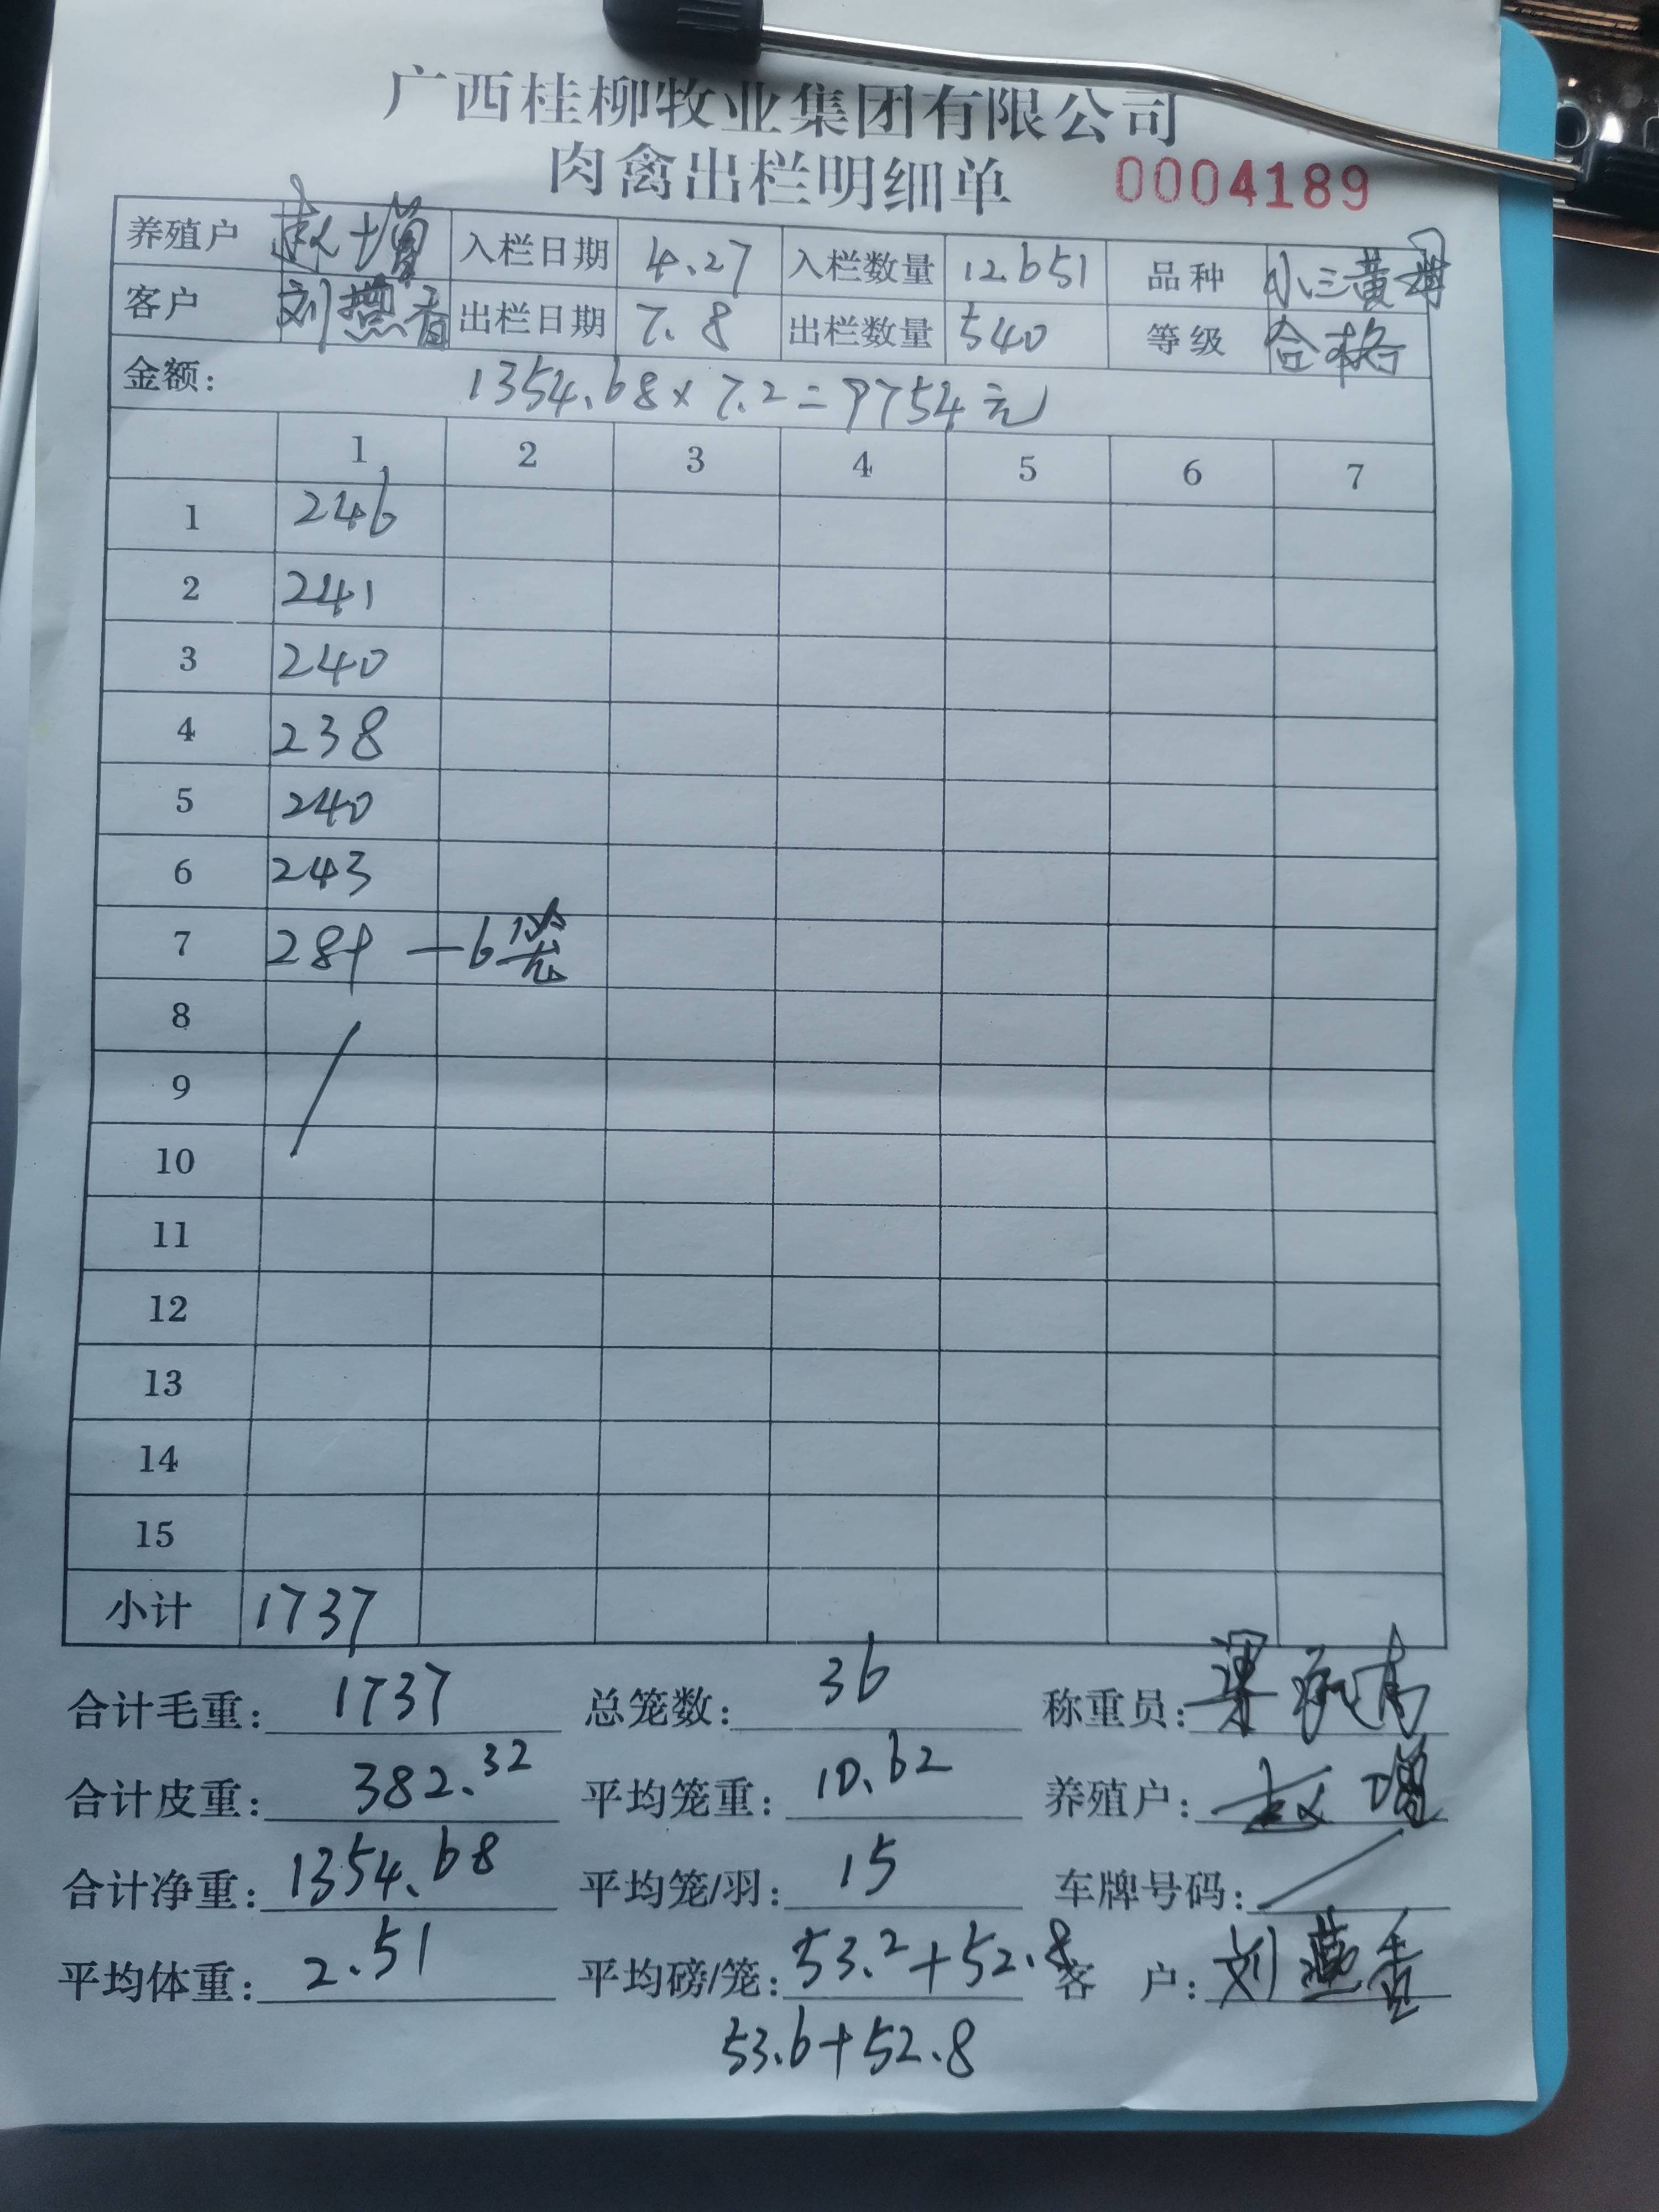 广西桂柳牧业集团有限公司
肉禽出栏明细单 0004189
养殖户 赵增 入栏日期 4.27 入栏数量 12651 品种 小三黄母
客户 刘燕香 出栏日期 7.8 出栏数量 540 等级 合格
金额: 1354.68×7.2=9754元
1 2 3 4 5 6 7
1 246
2 241
3 240
4 238
5 240
6 243
7 289 —6笼
8
9
10
11
12
13
14
15
小计 1737
合计毛重: 1737 总笼数: 36 称重员:
合计皮重: 382.32 平均笼重: 10.62 养殖户: 赵增
合计净重: 1354.68 平均笼/羽: 15 车牌号码:
平均体重: 2.51 平均磅/笼: 53.2+52.8 客户: 刘燕香
53.6+52.8